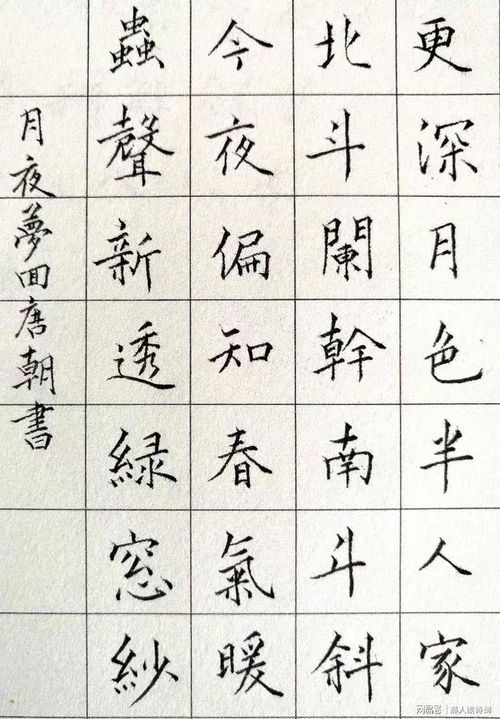 更深月色半人家
北斗闌幹南斗斜
今夜偏知春氣暖
蟲聲新透綠窓紗
月夜夢回唐朝書
网易号 | 醉人读诗词